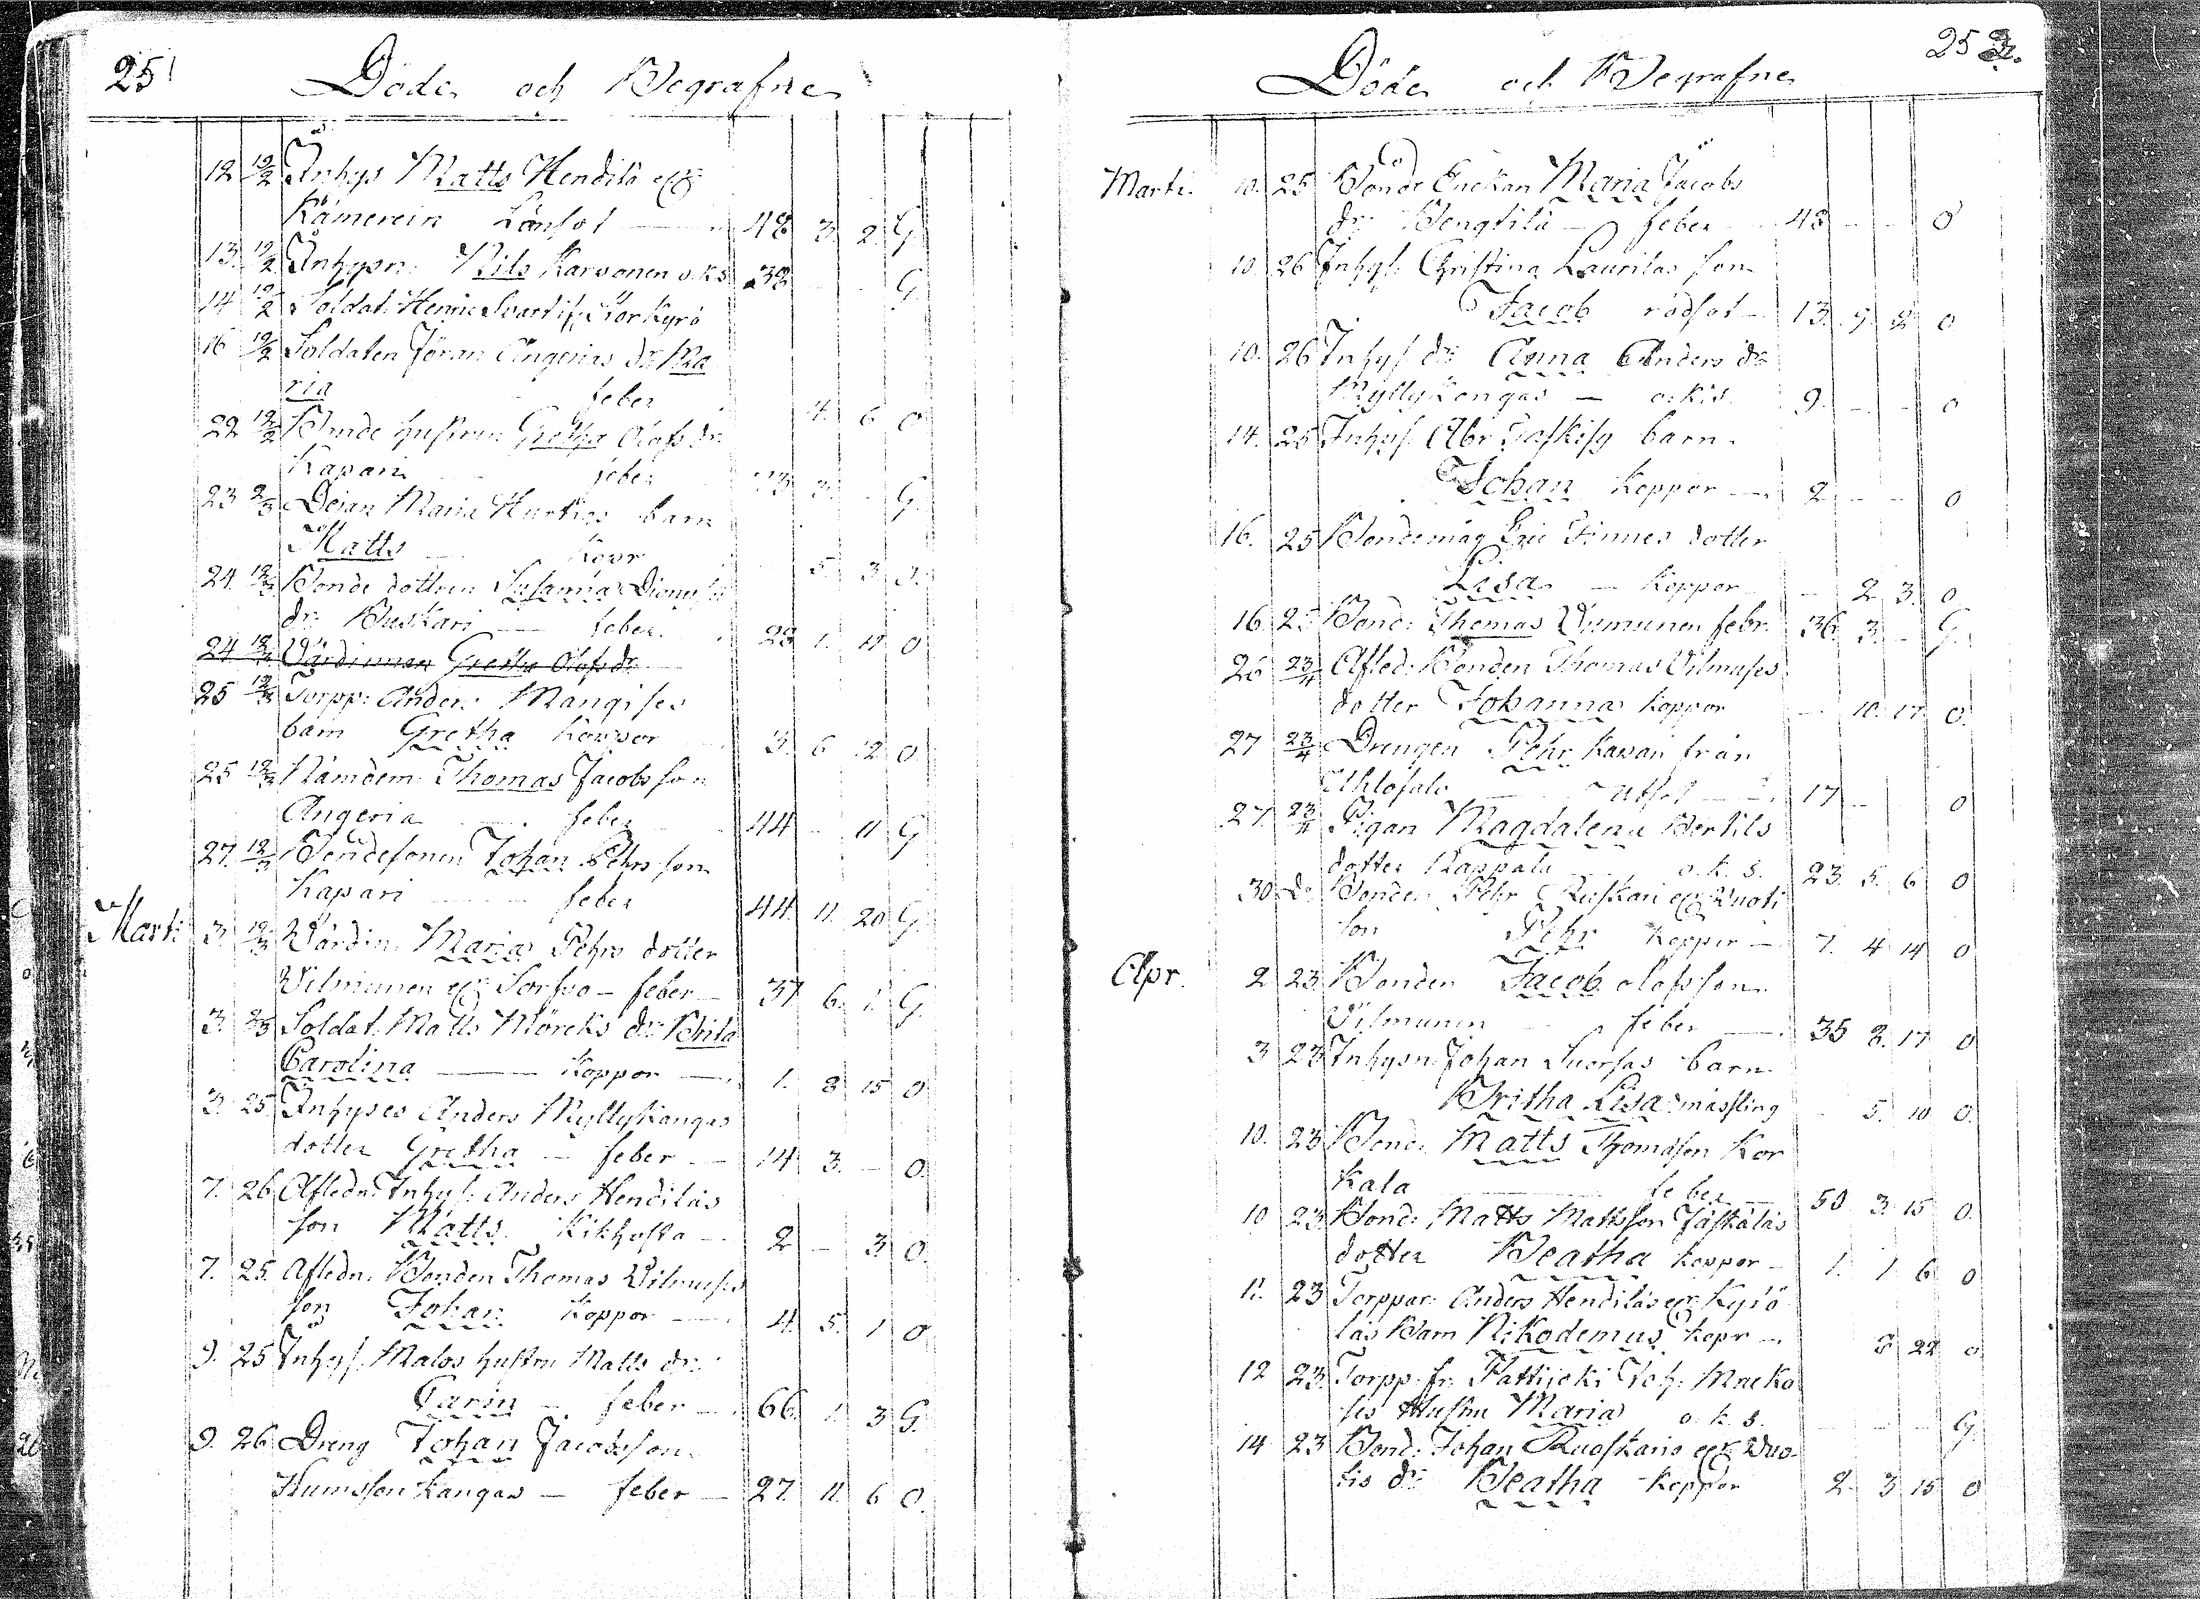 251
Döde och Begrafne
12 12/2 Inhys Matts Hendilä
Kämerein Lönsot — 48. 3. 2. G
13. 12/2 Inhysn: Nils Karvonen o.k.s 38 G
14 12/2 Soldat: Henric Storkyrö
16 12/2 Soldaten Jöran Angerias dr Ma
ria feber 4. 6 O
22 12/2 Bonde hustrun Gretha Olofs dr
Kapari feber 3. G.
23 2/3 Maria Hurtigs barn
Matts Kopr 5 3 O.
24. 12/3 Bonde dottren Susanna
dr Ruskari — feber. 23 1. 11 O
24 12/3 Värdinnan Gretha Olofs dr
25 12/3 Torpp: Anders Mangises
barn Gretha Koppor 3. 6 12 O
25 12/3 Nämdem: Thomas Jacobsson
Angeria feber 44 — 11 G
27. 12/3 Bondesonen Johan Pehrs son
Kapari — feber 44. 11. 20 G
Marti 3. 12/3 Värdin: Maria Pehrs dotter
Vilmunen Sorsvo — feber — 37 6. 1. G
3. 25 Soldat. Matts Mörcks dr Brita
Carolina — Koppor — 1. 8 15 O
3. 25. Inhyses Anders Myllykangas
dotter Gretha — feber — 14 3. — O.
7. 26 Afledn: Inhys: Anders Hendiläs
son Matts. Kikhosta — 2 — 3 O.
7. 25. Afledn: Bonden Thomas Vilmuses
son Johan Koppor — 4. 5. 1 O
9. 25 Inhys. Matos hustru Matts dr
Carin — feber — 66. 1. 3 G.
9. 26 Dreng Johan Jacobsson
kangas — feber — 27. 11. 6 O.
252.
Döde och Begrafne
Marti. 10. 25 Bonde Enckan Maria Jacobs
dr Bengtilä — feber 48 — — O
10. 26 Inhys: Christina Lauritas son
Jacob rödsot — 13. 9. 2 O
10. 26 Inhys dr Anna Anders dr
Myllykangas — o.k.s. 9. — — O
14. 25 Inhys. Abr barn
Johan Koppor — 2 — — O
16. 25 Bondemåg Eric Finnes dotter
Lisa — Koppor — 2 3. O
16. 25 Bond: Thomas Vilmunen febr. 36 3. — G.
26 23/4 Afled: Bonden Thomas Vilmuses
dotter Johanna Koppor — 10. 17. O.
27 23/4 Drengen Pehr Kapari från
17 — O
27. 23/4 Pigan Magdalena Bertils
dotter Kappala o.k.s. 23. 5. 6 O
30 do Bonden Pehr Ruskari Vuoti
son Pehr Koppor — 7. 4 14 O
Apr. 2 23 Bonden Jacob Olofsson
Vilmunen feber — 35 8. 17 O
3 23 Inhysn Johan Suorsas barn
Britha Lisa mässling — 5. 10 O.
10. 23 Bond: Matts Thomasson Kor
kala — feber — 50 3. 15 O.
10 23 Bond: Matts Mattsson Jäskäläs
dotter Beatha Koppor — 1. 1 6 O
11. 23 Torppar: Anders Hendiläs Kyrö
läs Barn Nikodemus Kopr — 8 22 O
12 23. Torpp. fr. Pattijoki Joh: Macko
ses Hustru Maria o.k.s. — — — G.
14 23 Bond: Johan Ruoskaris Vuo-
tis dr Beatha Koppor 2. 3 15 O